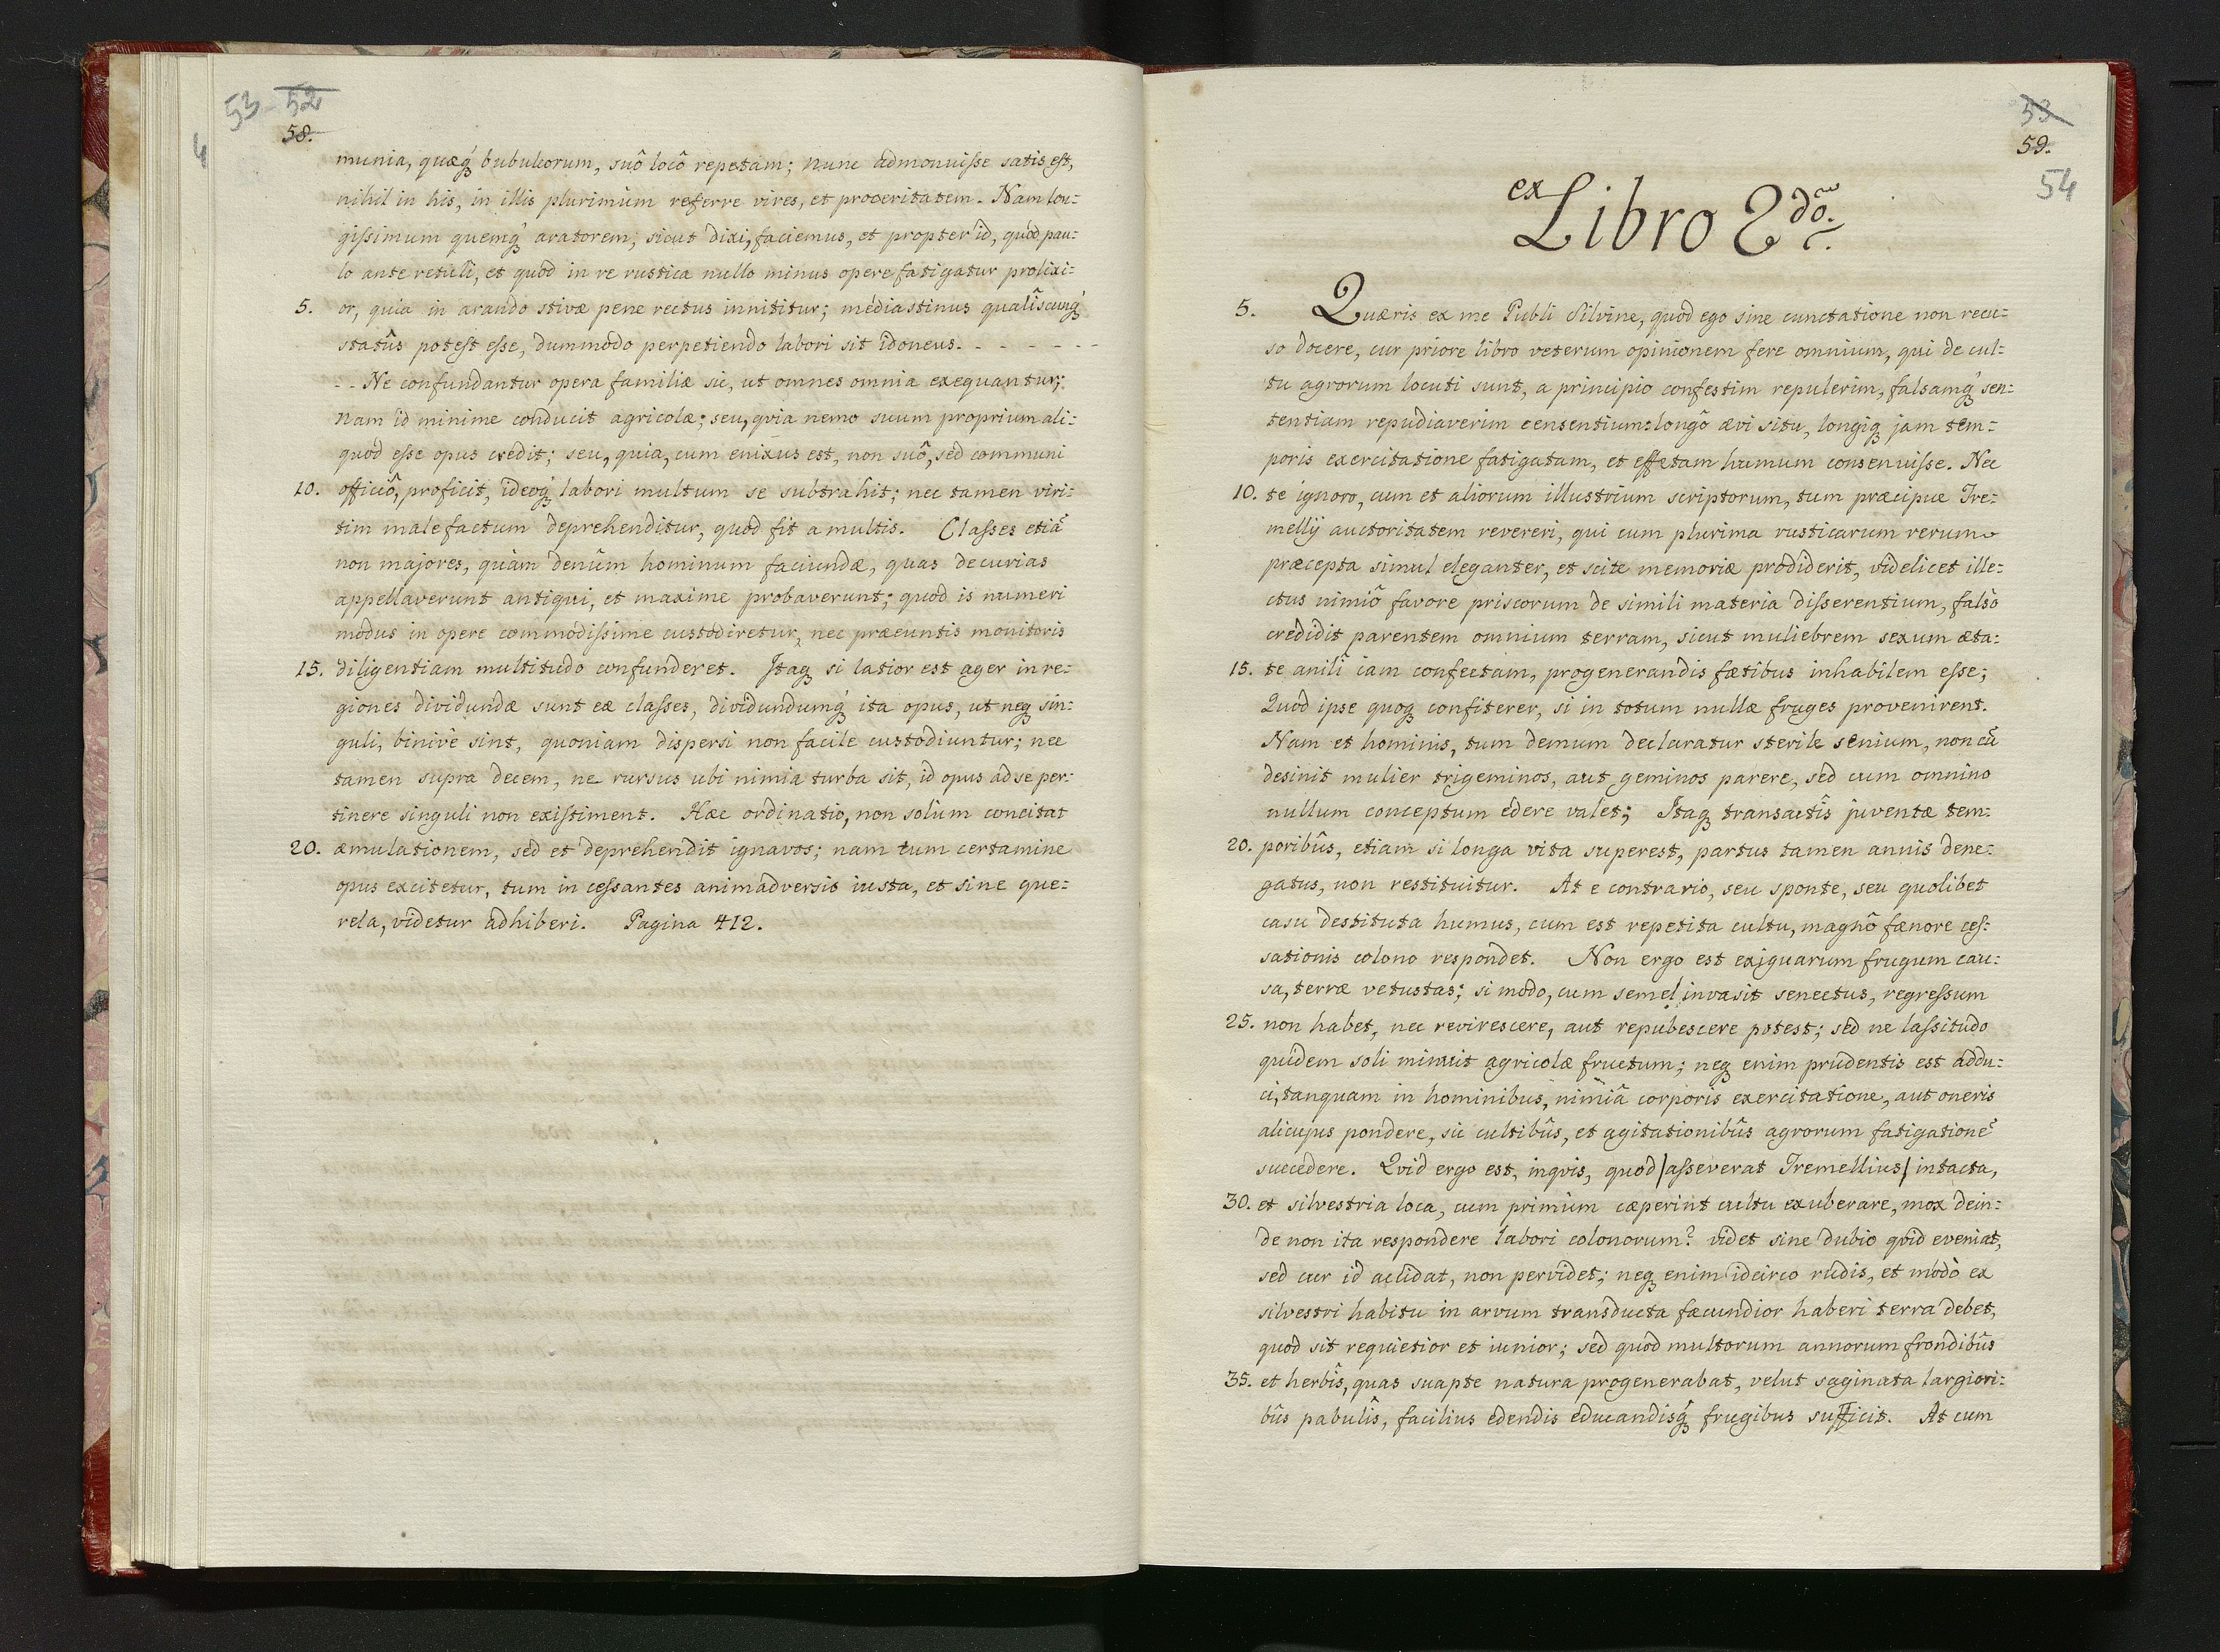 53 52
58.
4
munia, quæq́ bubulcorum, suô locô repetam; nunc admonuisse satis est,
nihil in his, in illis plurimùm referre vires, et proceritatem. Nam lon:
gissimum quemq́ aratorem, sicut dixi, faciemus, et propter id, quod pau:
lo ante retuli, et quod in re rustica nullo minus opere fatigatur prolixi:
5. or, quia in arando stivæ pene rectus innititur; mediastinus qualiscunq́
statûs potest esse, dummodo perpetiendo labori sit idoneus. - - - - - -
- - Ne confundantur opera familiæ sic, ut omnes omnia exequantur;
nam id minime conducit agricolæ; seu, qvia nemo suum proprium ali:
quod esse opus credit; seu, quia, cum enixus est, non suô, sed communi
10. officiô, proficit, ideoq́ labori multum se subtrahit; nec tamen viri:
tim malefactum deprehenditur, quod fit a multis. Classes etiã
non majores, quàm denûm hominum faciundæ, quas decurias
appellaverunt antiqui, et maxime probaverunt; quod is numeri
modus in opere commodissime custodiretur, nec præeuntis monitoris
15. diligentiam multitudo confunderet. Itaq si latior est ager in re:
giones dividundæ sunt eæ classes, dividundumq́ ita opus, ut neq sin:
guli, binive sint, quoniam dispersi non facile custodiuntur; nec
tamen supra decem, ne rursus ubi nimia turba sit, id opus ad se per:
tinere singuli non existiment. Hæc ordinatio, non solùm concitat
20. æmulationem, sed et deprehendit ignavos; nam tum certamine
opus excitetur, tum in cessantes animadversio iusta, et sine que:
rela, videtur adhiberi. Pagina 412.
53
59.
54
ex Libro 2do.
5. Quæris ex me Publi Silvine, quod ego sine cunctatione non recu:
so docere, cur priore libro veterum opinionem fere omnium, qui de cul:
tu agrorum locuti sunt, a principio confestim repulerim, falsamq́ sen:
tentiam repudiaverim censentium: longô ævi situ, longiq jam tem:
poris exercitatione fatigatam, et effetam humum consenuisse. Nec
10. te ignoro, cum et aliorum illustrium scriptorum, tum præcipue Tre:
mellij auctoritatem revereri, qui cum plurima rusticarum rerum
præcepta simul eleganter, et scite memoriæ prodiderit, videlicet ille:
ctus nimiô favore priscorum de simili materia disserentium, falso
credidit parentem omnium terram, sicut muliebrem sexum æta:
15. te anilî iam confectam, progenerandis fætibus inhabilem esse;
Quod ipse quoq confiterer, si in totum nullæ fruges provenirent.
Nam et hominis, tum demum declaratur sterile senium, non cũ
desinit mulier trigeminos, aut geminos parere, sed cum omnino
nullum conceptum edere valet; Itaq transactîs juventæ tem:
20. poribûs, etiam si longa vita superest, partus tamen annis dene:
gatus, non restituitur. At e contrario, seu sponte, seu quolibet
casu destituta humus, cum est repetita cultu, magnô fænore ces:
sationis colono respondet. Non ergo est exiguarum frugum cau:
sa, terræ vetustas; si modo, cum semel invasit senectus, regressum
25. non habet, nec revirescere, aut repubescere potest; sed ne lassitudo
quidem soli minuit agricolæ fructum; neq enim prudentis est addu:
ci, tanquam in hominibus, nimiâ corporis exercitatione, aut oneris
alicujus pondere, sic cultibûs, et agitationibûs agrorum fatigationẽ
succedere. Qvid ergo est, inqvis, quod/asseverat Tremellius/intacta,
30. et silvestria loca, cum primùm cæperint cultu exuberare, mox dein:
de non ita respondere labori colonorum? videt sine dubio qvid eveniat,
sed cur id accidat, non pervidet; neq enim idcirco rudis, et modò ex
silvestri habitu in arvum transducta fæcundior haberi terra debet,
quod sit requietior et iunior; sed quod multorum annorum frondibûs
35. et herbîs, quas suapte natura progenerabat, velut saginata largiori:
bûs pabulîs, facilius edendis educandisq́ frugibus sufficit. At cum